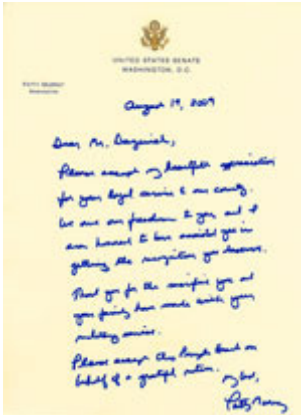 UNITED STATES SENATE
WASHINGTON, D.C.
PATTY MURRAY
WASHINGTON
August 19, 2009
Dear Mr.
Please accept my heartfelt appreciation
for your loyal service to our country.
We owe our freedom to you, and I
am honored to have assisted you in
getting the recognition you deserve.
Thank you for the sacrifice you and
your family have made with your
military service.
Please accept this Purple Heart on
behalf of a grateful nation.
My best,
Patty Murray